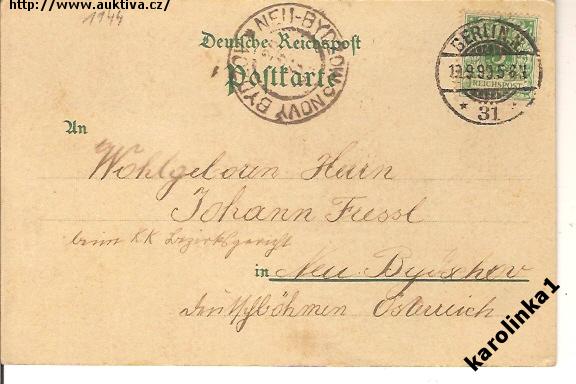 http://www.auktiva.cz/
1944
Deutsche Reichspost
Postkarte
NEU-BYDŽOW NOVÝ BYDŽOV
BERLIN.N.
REICHSPOST
* 31 *
An
Wohlgeboren Herrn
Johann Fressl
beim KK Bezirksgericht
in Neu Bydschov
Deutschböhmen Österreich
karolinka1